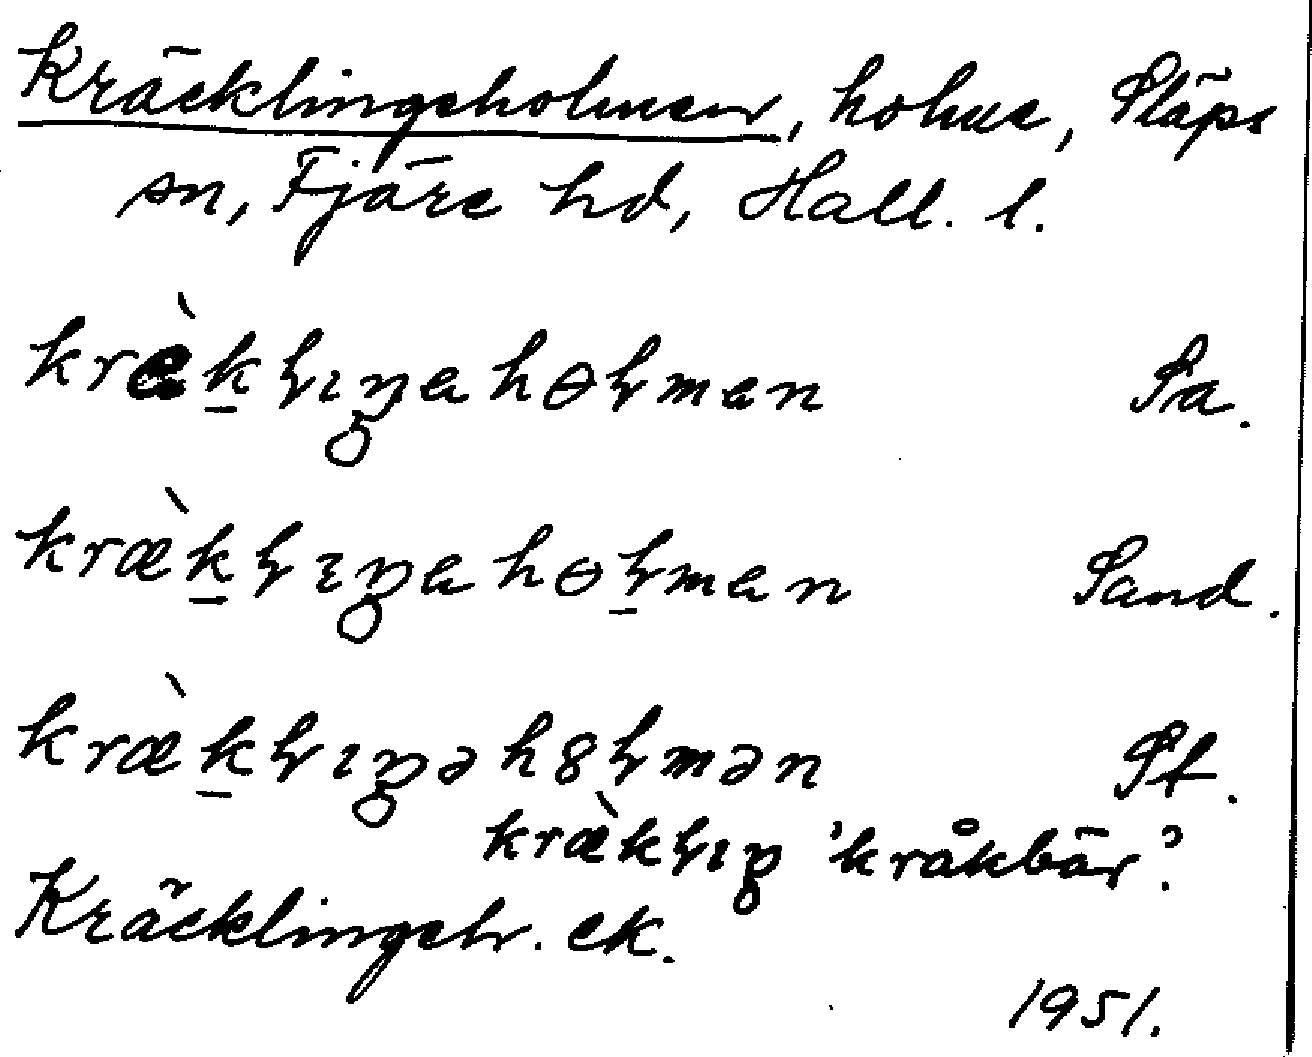 Kräcklingeholmen, holme, Släps
sn, Fjäre hd, Hall. l.
kræ̀k̲ꞎıŋahɵꞎman Sa.
kræ̀k̲ꞎıŋahɵꞎ̲man Sand.
kræ̀k̲ꞎıŋəh8ꞎmən St.
kræ̀kꞎıŋ 'kråkbär'.
Kräcklingeh. ek.
1951.